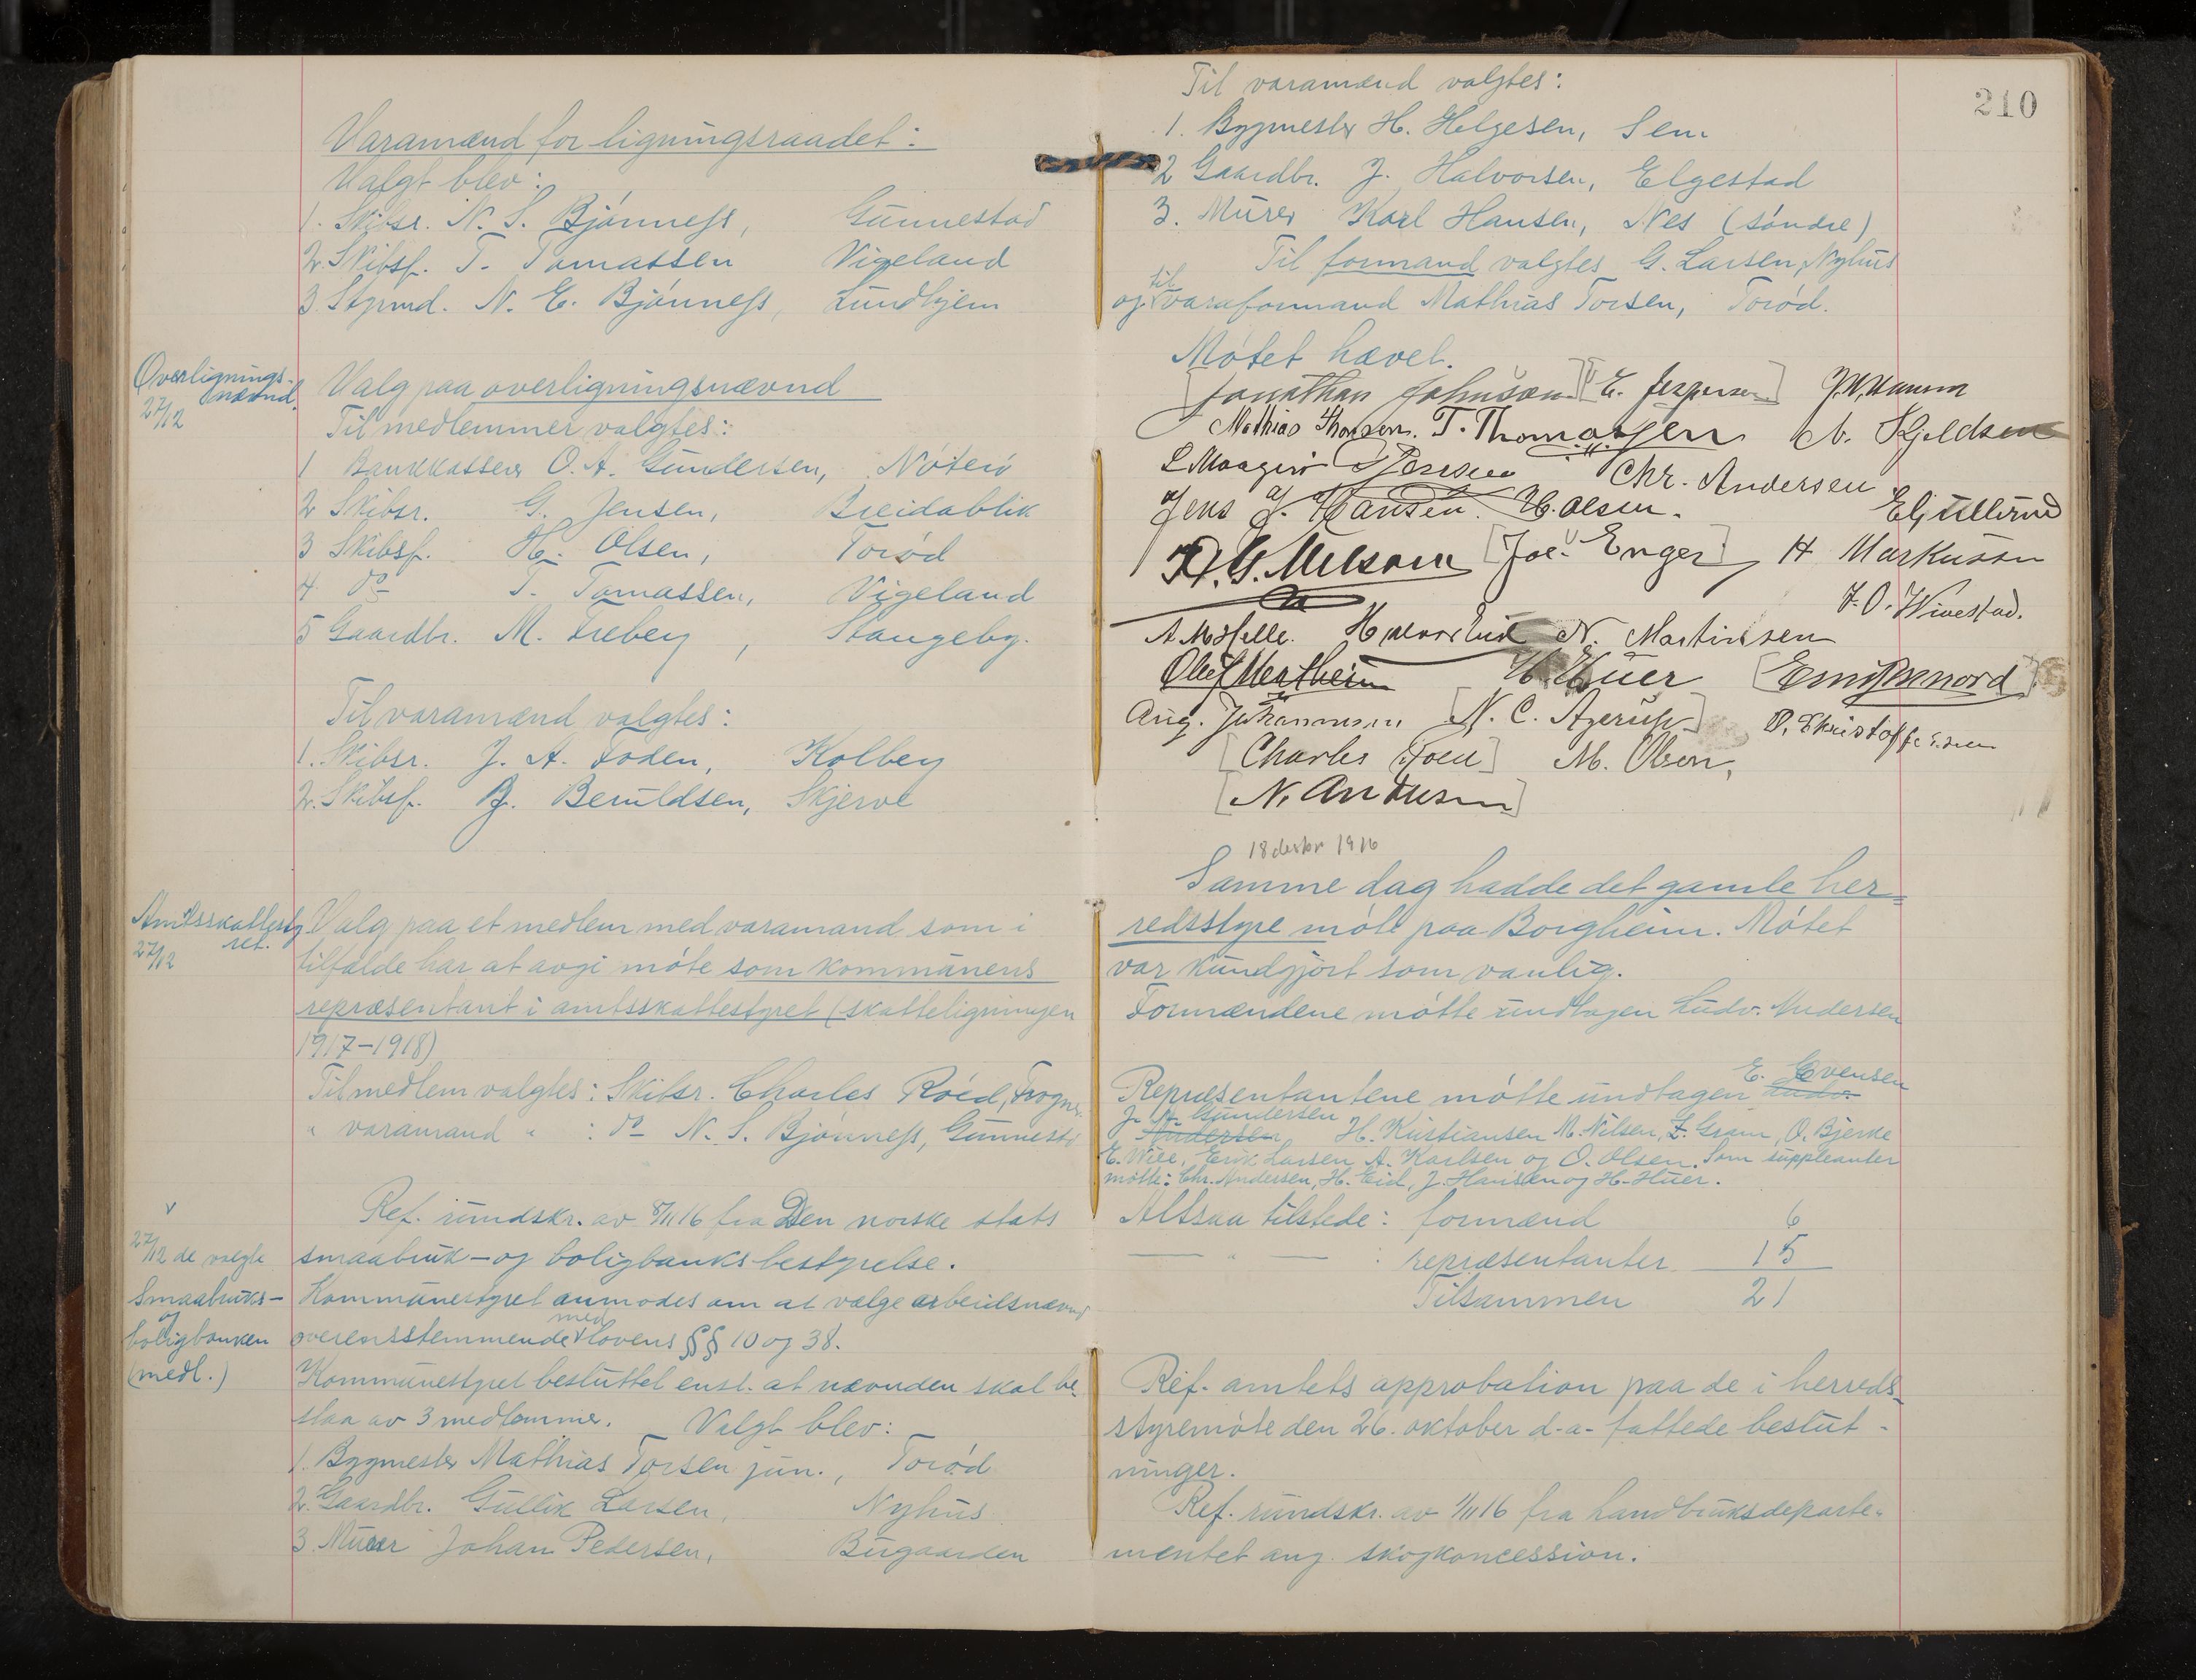 Varamænd for ligningsraadet:
Valgt blev:
1. Skibsr. N. S. Bjønness, Gunnestad
2. Skibsf. T. Tomassen Vigeland
3. Styrmd. N. E. Bjønness, Lundhjem
Overlignings-
nævnd.
27/12
Valg paa overligningsnævnd
Til medlemmer valgtes:
1 Bankkasserer O. A. Gundersen, Nøterø
2 Skibsr. G. Jensen, Breidablik
3 Skibsf. H. Olsen, Torød
4 do T. Tomassen, Vigeland
5 Gaardbr. M. Freberg, Stangeby.
Til varamænd valgtes:
1. Skibsr. J. A. Foden, Kolberg
2. Skibsf. B. Beruldsen, Skjerve
Amtsskattesty
ret.
27/12
Valg paa et medlem med varamand som i
tilfælde har at avgi møte som kommunens
repræsentant i amtsskattestyret (skatteligningen
1917-1918)
Til medlem valgtes: Skibsr. Charles Röed, Frogner.
" varamand " : do N. S. Bjønness, Gunnest
v
27/12 de valgte
Smaabruks-
og
boligbanken
(medl.)
Ref. rundskr. av 8/11 16 fra Den norske stats
smaabruk- og boligbanks bestyrelse.
Kommunestyret anmodes om at vælge arbeidsnævnd
overensstemmende med lovens §§ 10 og 38.
Kommunestyret besluttet enst. at nævnden skal be-
staa av 3 medlemmer. Valgt blev:
1. Bygmester Mathias Torsen jun., Torød
2. Gaardbr. Gullik Larsen, Nyhus
3 Murer Johan Pedersen, Bugaarden
210
Til varamænd valgtes:
1. Bygmester H. Helgesen, Sem
2 Gaardbr. J. Halvorsen, Elgestad
3. Murer Karl Hansen, Nes (søndre)
Til formand valgtes G. Larsen, Nyhus
og til varaformand Mathias Torsen, Torød.
Møtet hævet.
[Jonathan Johnson] [E. Jespersen]
Mathias Thorsen. T. Thomassen N. Kjeldsen
Chr. Andersen
Jens J. Hansen. H. Olsen.
[Joe. Enger] H Markussen
J. O. Wivestad.
N. Martinsen
H. Huer
Aug. Johannesen [N. C. Agerup] O. Christoffersen
[Charles Röed] M. Olsen,
[N. Andersen]
18 desbr 1916
Samme dag hadde det gamle her-
redsstyre møte paa Borgheim. Møtet
var kundgjort som vanlig.
Formændene møtte undtagen Ludv. Andersen
Repræsentantene møtte undtagen Ludv. E. Evensen
Andersen J. A. Gundersen H. Kristiansen M. Nilsen, Z. Gram, O. Bjerke
E. Wiee, Erik Larsen A. Karlsen og O. Olsen. Som suppleanter
møtte: Chr. Andersen, H. Eid, J. Hansen og H. Huer.
Altsaa tilstede: formænd 6
— " — : repræsentanter 15
Tilsammen 21
Ref. amtets approbation paa de i herreds-
styremøte den 26. oktober d. a. fattede beslut-
ninger.
Ref. rundskr. av 1/11 16 fra landbruksdeparte-
mentet ang. skogkoncession.